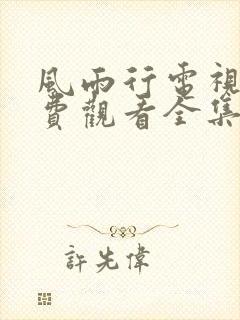 風雨行電視
費觀看全集
許先偉